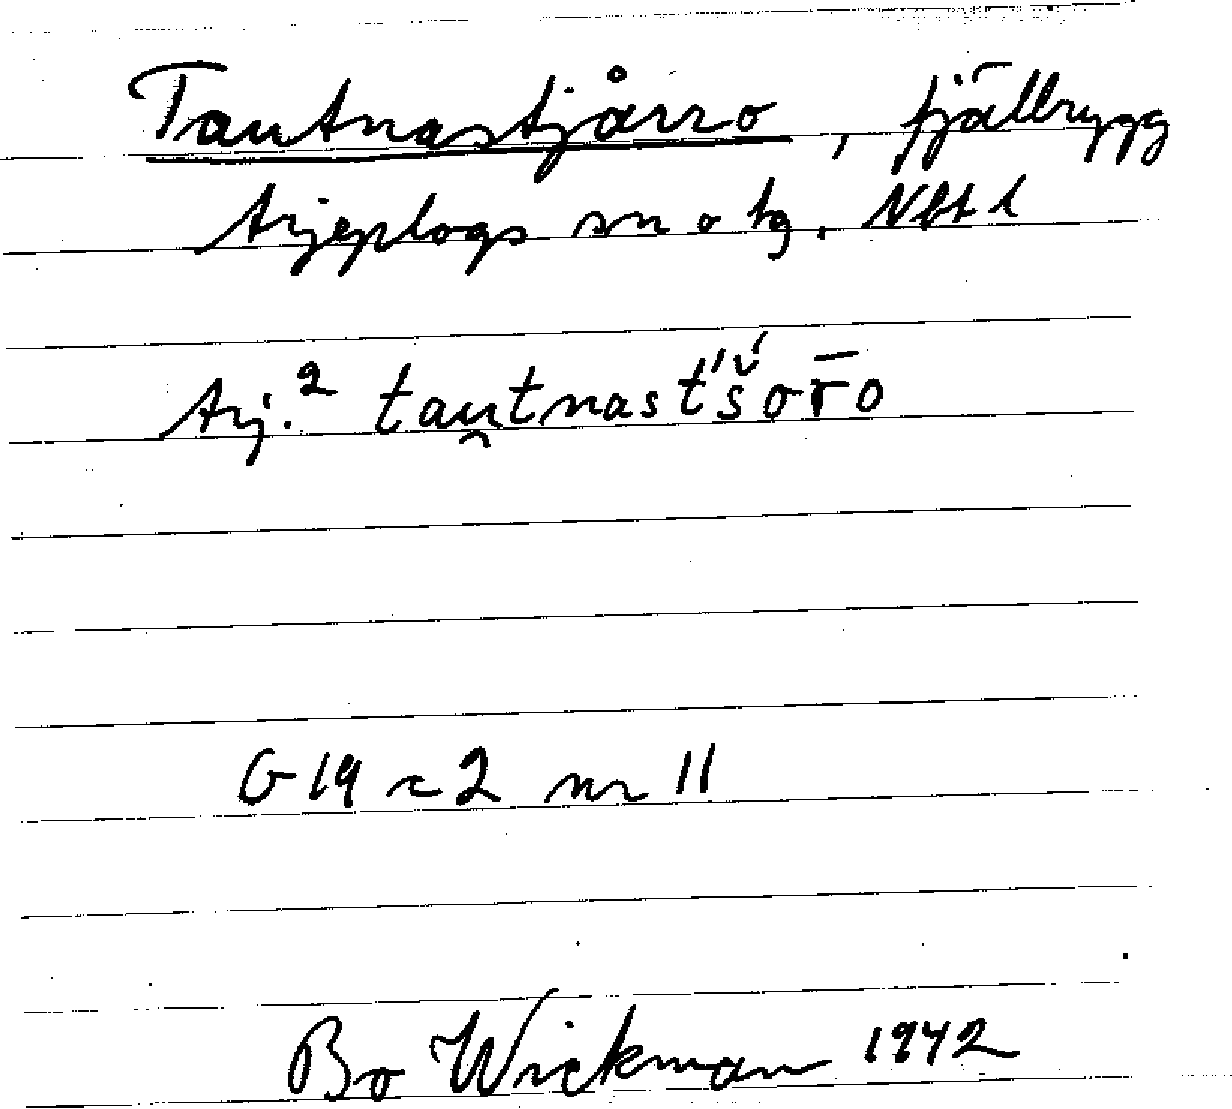 Tautnastjårro, fjällrygg
Arjeplogs sn o tg. Nbt l
Arj.² tau̯tnast́š́or̄o
G 19 c 2 nr 11
Bo Wickman 1942